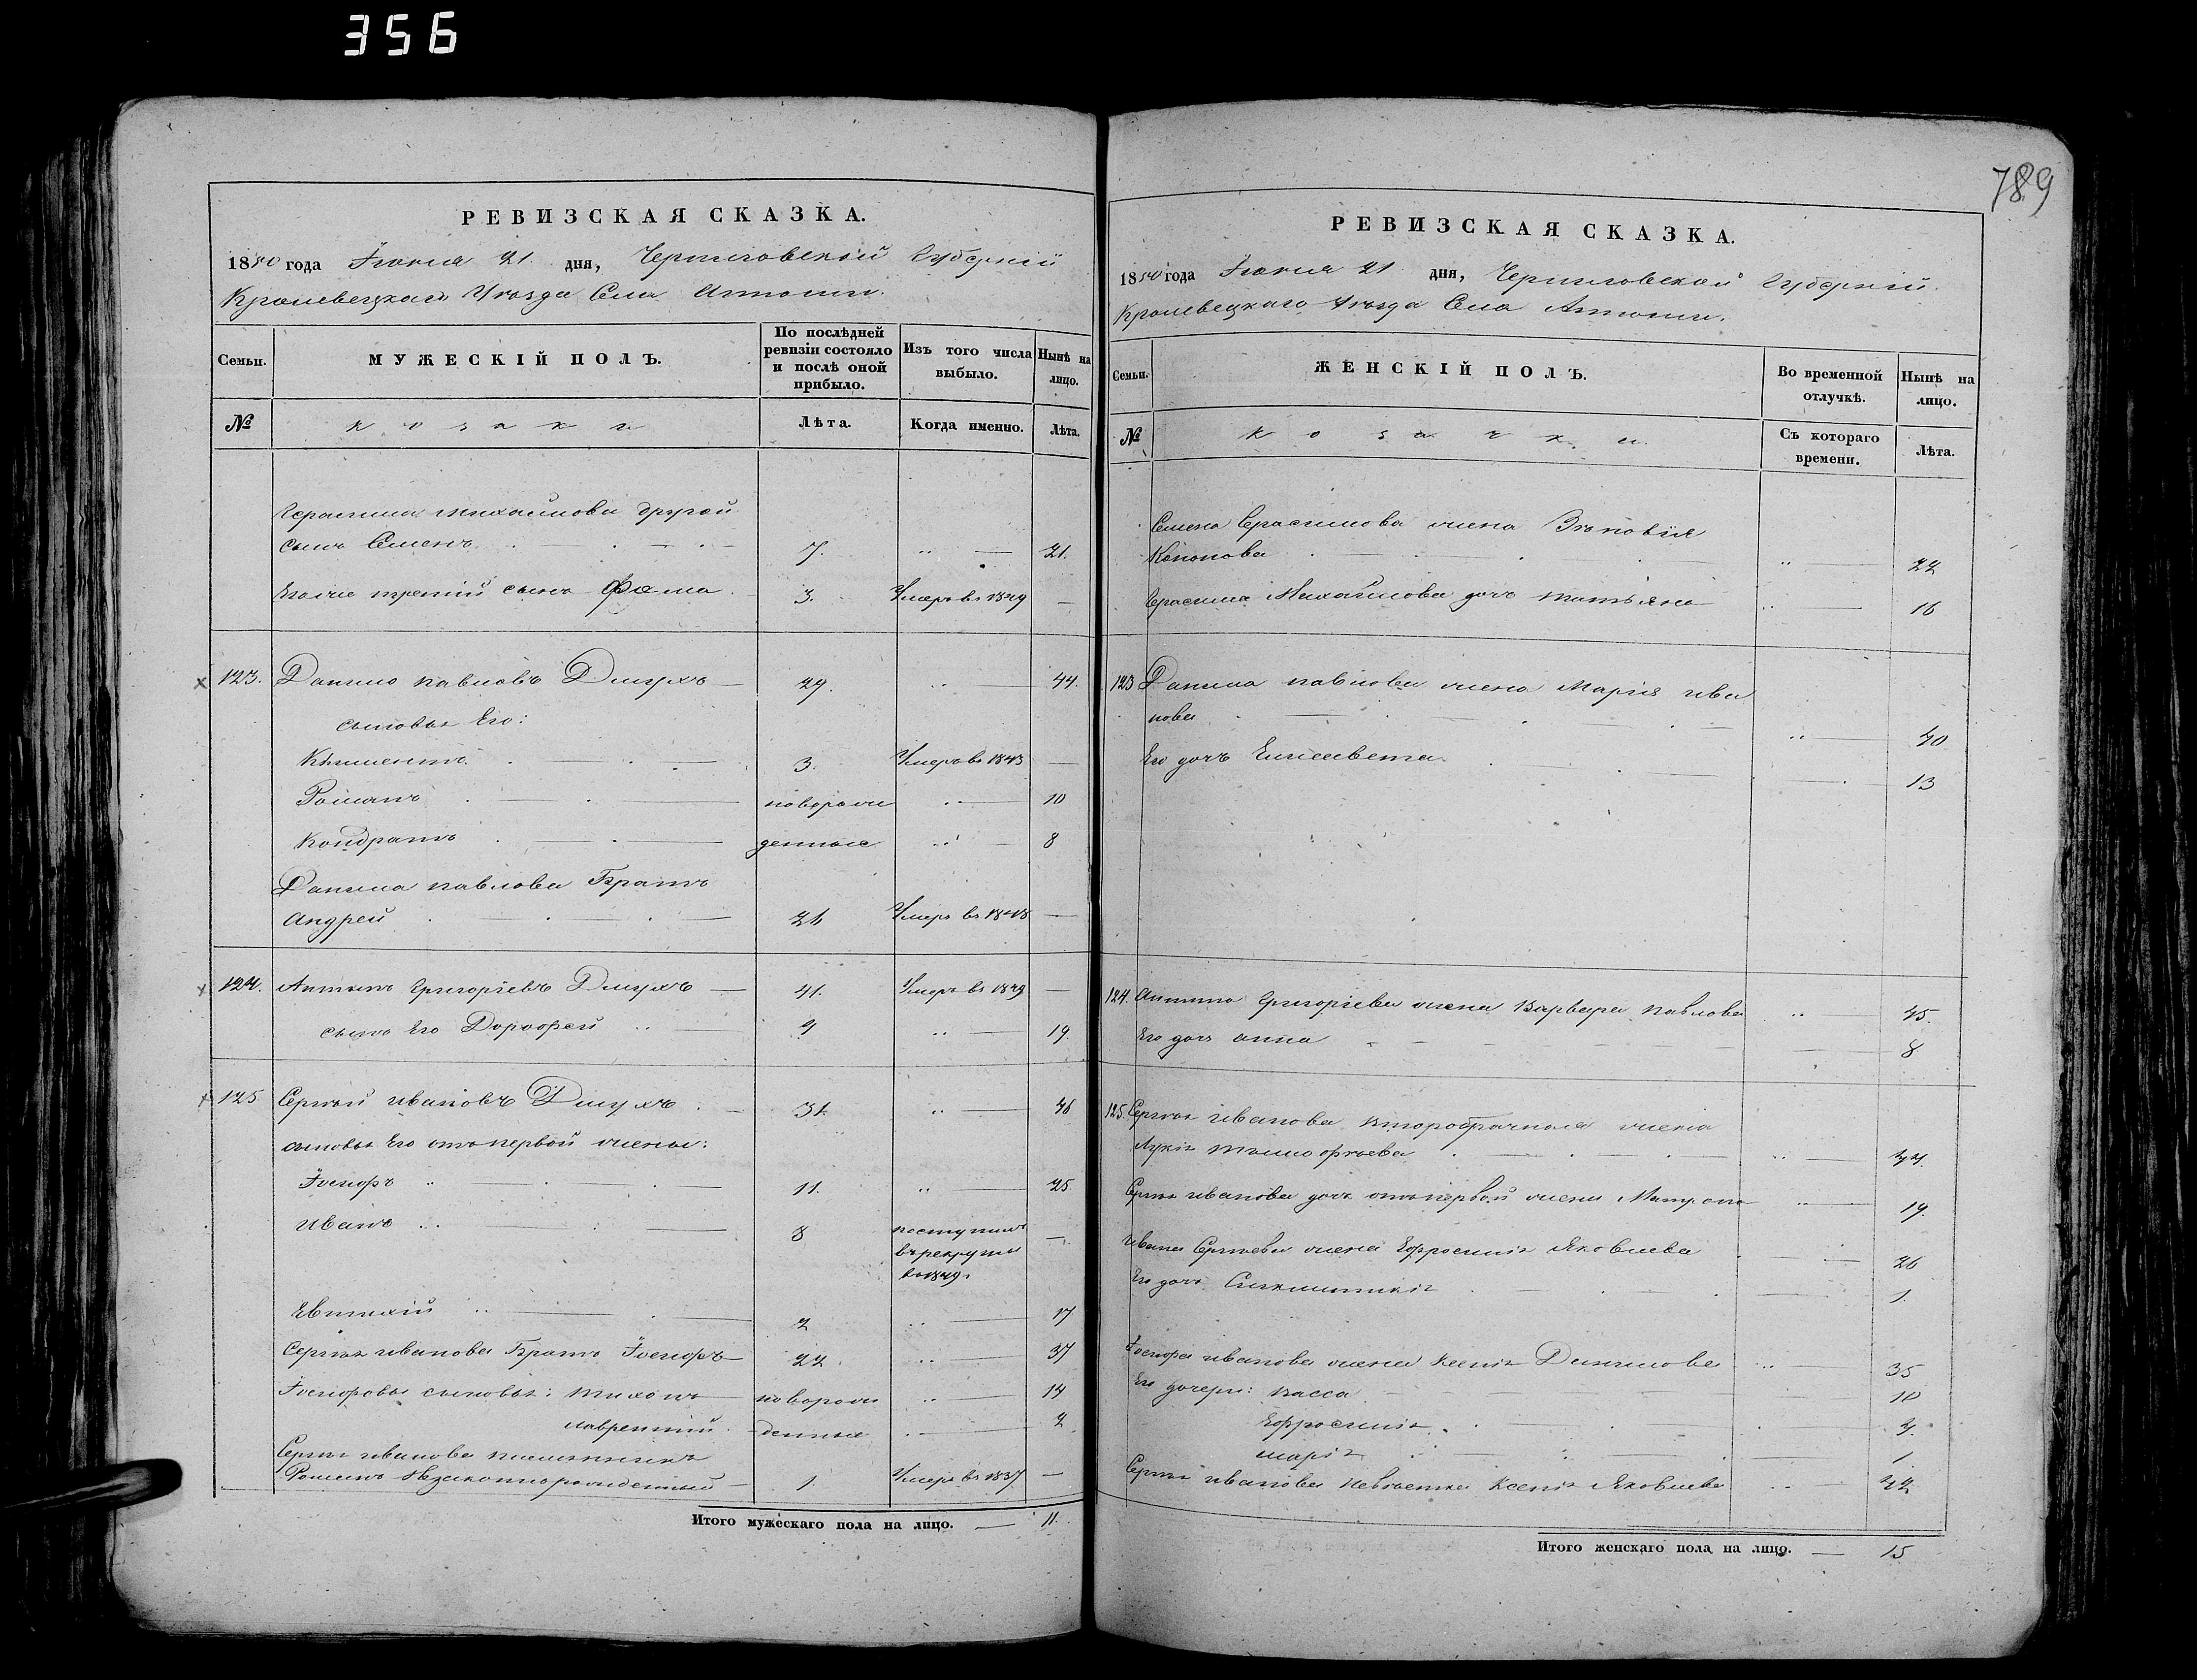 356
789
РЕВИЗСКАЯ СКАЗКА.
1850 года Іюня 21 дня, Черниговской Губерніи
Кролевецкаго Уѣзда Села
Семьи.
МУЖЕСКІЙ ПОЛЪ.
По послѣдней ревизіи состояло и послѣ оной прибыло.
Изъ того числа выбыло.
Нынѣ на лицо.
№
козаки
Лѣта.
Когда именно.
Лѣта.
Герасима Михайлова другой
сынъ Семенъ 7. 21.
Его же третій сынъ Фома 3. Умеръ въ 1849 —
123. Данило Павловъ 29. 44.
сыновья Его:
Климентъ 3. Умеръ въ 1843 —
Романъ новорож 10
Кондратъ денные 8
Данила Павлова Братъ
Андрей Умеръ въ —
124. Антонъ Григорьевъ 41. Умеръ въ 1849 —
сынъ Его Дорофей 9 19.
125 Сергѣй Ивановъ 31. 46
сыновья Его отъ первой жены:
Іосифъ 11. 25
Иванъ 8 поступилъ —
въ рекруты
въ 1849 г.
Евтихій 2 17
Сергѣя Иванова Братъ Іосифъ 22 37
Іосифовы сыновья: Тихонъ новорож 14
Лаврентій денные 2
Сергѣя Иванова племянникъ
Романъ Незаконнорожденный 1. Умеръ въ 1837 —
Итого мужескаго пола на лицо. — 11.
РЕВИЗСКАЯ СКАЗКА.
1850 года Іюня 21 дня, Черниговской Губерніи
Кролевецкаго Уѣзда Села
Семьи.
ЖЕНСКІЙ ПОЛЪ.
Во временной отлучкѣ.
Нынѣ на лицо.
№
козачки.
Съ котораго времени.
Лѣта.
Семена Герасимова жена Зѣновія
Кононова 22
Герасима Михайлова дочь Татьяна 16
123 Данила Павлова жена Марія Ива
нова 40
Его дочь Елисавета 13
124. Антона Григорьева жена Варвара Павлова 45.
Его дочь Анна 8
125. Сергѣя Иванова второбрачная жена
Тимофѣева
Сергѣя Иванова дочь отъ первой жены 19.
Ивана Сергѣева жена Ефросинія Яковлева 26
Его дочь Синклитикія 1.
Іосифа Иванова жена Ксенія Данилова 35
Его дочери: Васса 10
Ефросинія
Марія 1
Сергѣя Иванова невѣстка Ксенія Яковлева
Итого женскаго пола на лицо. — 15